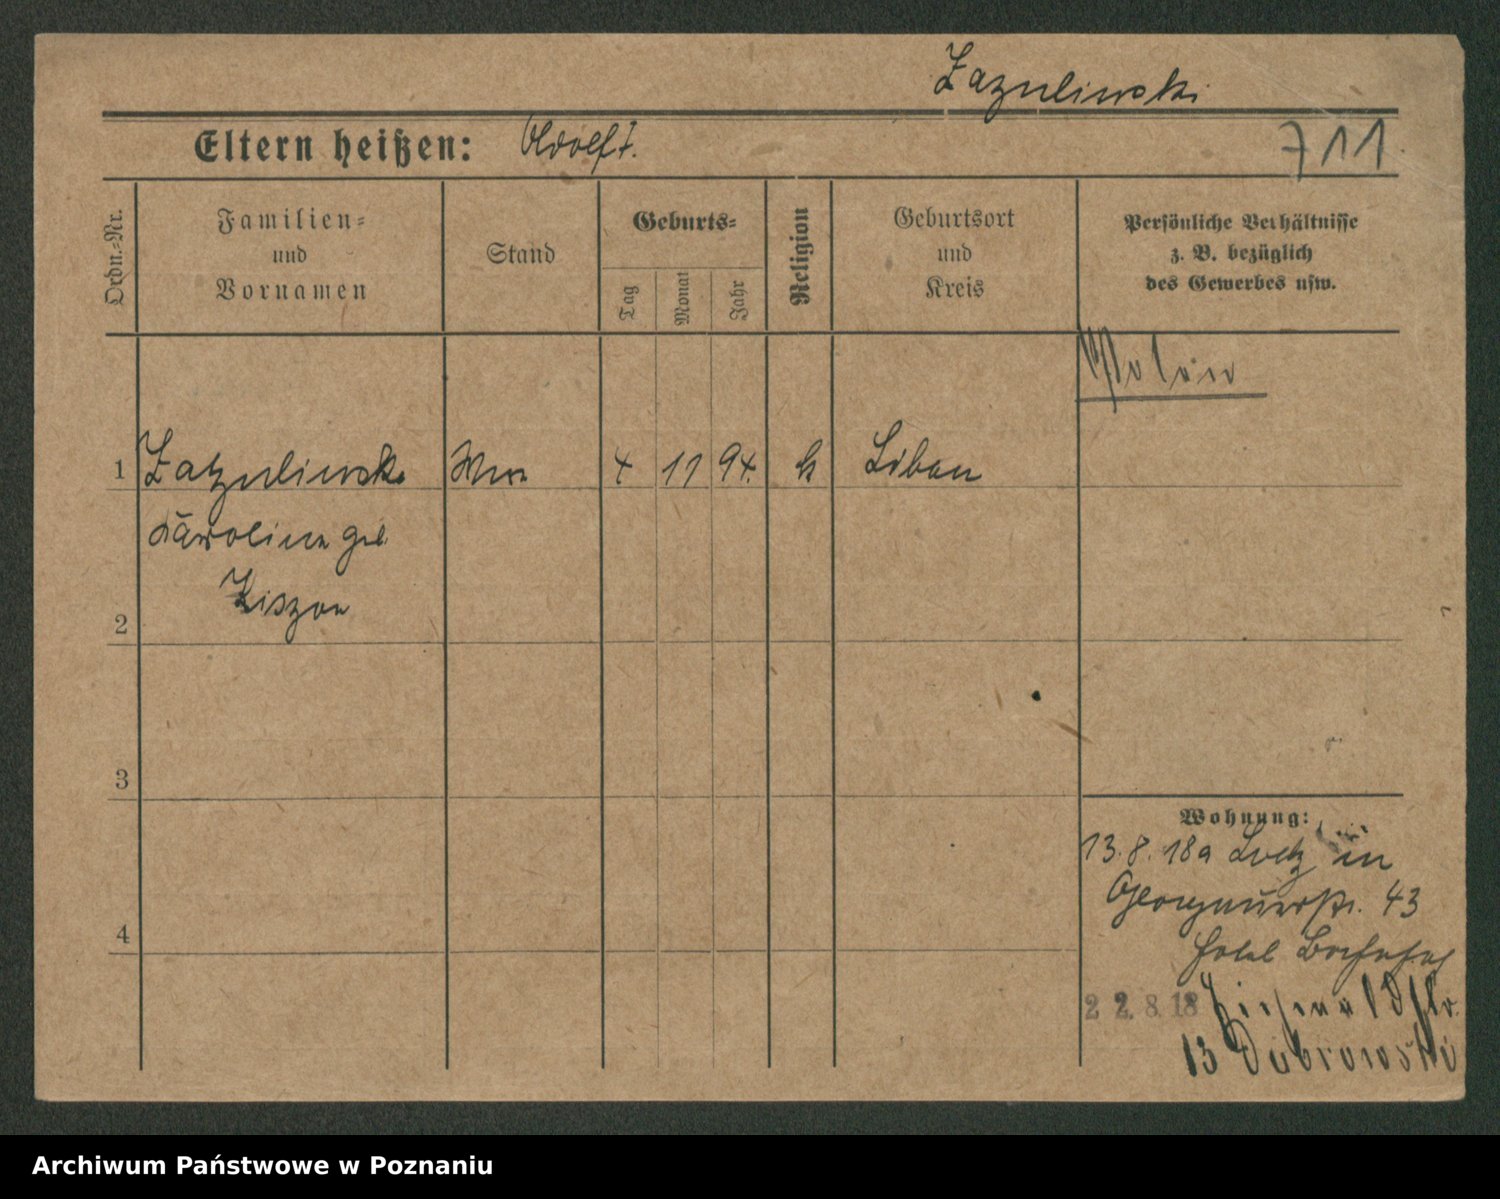 Zazulinski
Eltern heißen: Adolf †.
711.
Ordn.-Nr.
Familien-
und
Vornamen
Stand
Geburts-
Tag
Monat
Jahr
Religion
Geburtsort
und
Kreis
Persönliche Verhältnisse
z. B. bezüglich
des Gewerbes usw.
1 Zazulinski 4 11 94. k Libau
Karoline geb.
2
3
4
Wohnung:
13.8.18 a Lodz in
43
Hotel
22.8.18
13 Dubrowski
Archiwum Państwowe w Poznaniu